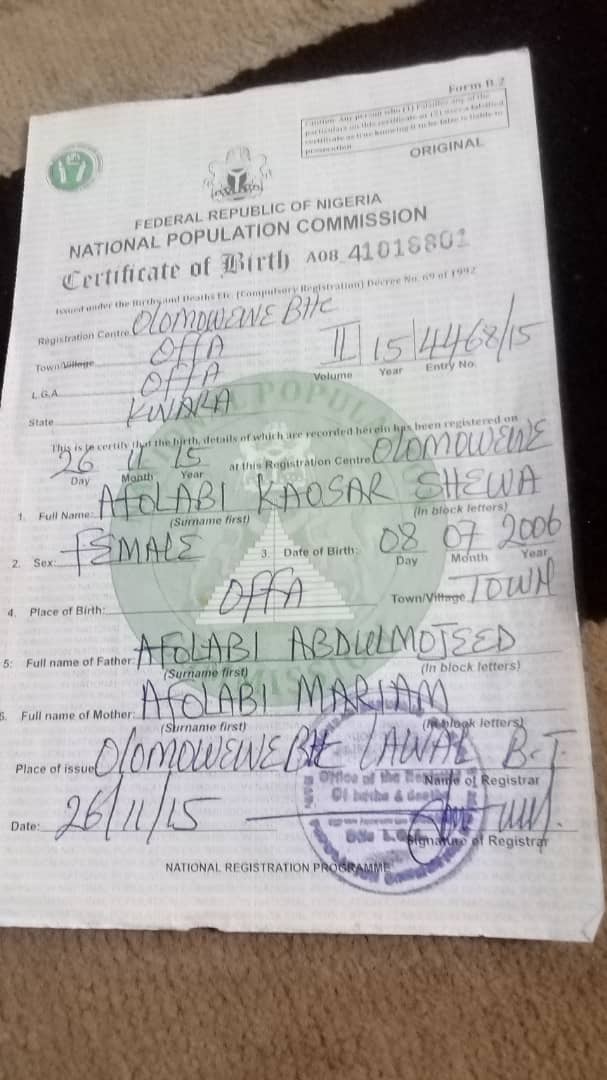 Form B.2
Caution: Any person who (1) Falsifies any of the
particulars on this certificate or (2) uses a falsified
certificate as true knowing it to be false is liable to
prosecution
ORIGINAL
FEDERAL REPUBLIC OF NIGERIA
NATIONAL POPULATION COMMISSION
Certificate of Birth A08 41016801
Issued under the Births and Deaths Etc. (Compulsory Registration) Decree No. 69 of 1992
Registration Centre OLOMOWEWE BHC
Town/Village OFFA
L.G.A. OFFA
State KWARA
II 15 4468/15
Volume Year Entry No.
This is to certify that the birth, details of which are recorded herein has been registered on
26 11 15 at this Registration Centre OLOMOWEWE
Day Month Year
1. Full Name: AFOLABI KAOSAR SHEWA
(Surname first) (In block letters)
2. Sex: FEMALE 3. Date of Birth: 08 07 2006
Day Month Year
4. Place of Birth: OFFA Town/Village TOWN
5: Full name of Father: AFOLABI ABDULMOJEED
(Surname first) (In block letters)
6. Full name of Mother: AFOLABI MARIAM
(Surname first) (In block letters)
Place of issue OLOMOWEWE BHC LAWAL B.T.
Name of Registrar
Office of the
Of births & deaths
Date: 26/11/15
Signature of Registrar
NATIONAL REGISTRATION PROGRAMME